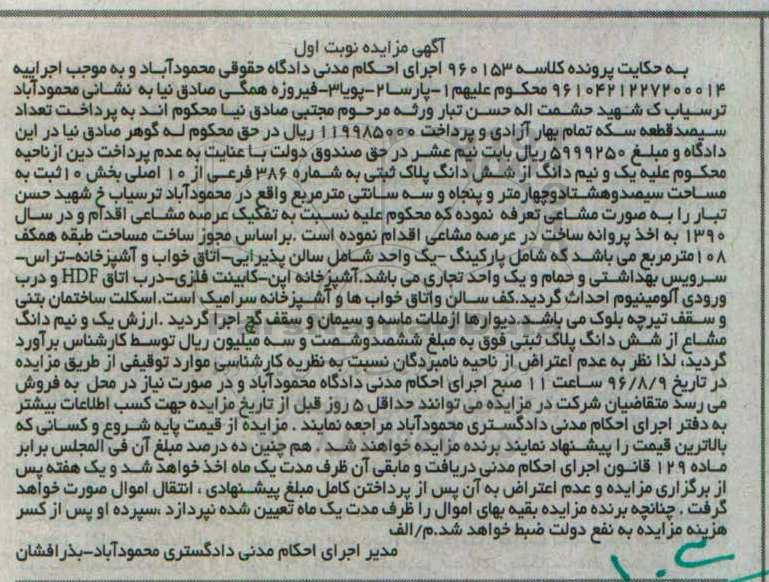 آگهی مزایده نوبت اول
به حکایت پرونده کلاسه ۹۶۰۱۵۳ اجرای احکام مدنی دادگاه حقوقی محمودآباد و به موجب اجراییه
۹۶۱۰۴۲۱۲۲۷۲۰۰۰۱۴ محکوم علیهم۱-پارسا۲-پویا۳-فیروزه همگی صادق نیا به نشانی محمودآباد
ترسیاب ک شهید حشمت اله حسن تبار ورثه مرحوم مجتبی صادق نیا محکوم اند به پرداخت تعداد
سیصدقطعه سکه تمام بهار آزادی و پرداخت ۱۱۹۹۸۵۰۰۰ ریال در حق محکوم له گوهر صادق نیا در این
دادگاه و مبلغ ۵۹۹۹۲۵۰ ریال بابت نیم عشر در حق صندوق دولت با عنایت به عدم پرداخت دین ازناحیه
محکوم علیه یک و نیم دانگ از شش دانگ پلاک ثبتی به شماره ۳۸۶ فرعی از ۱۰ اصلی بخش ۱۰ثبت به
مساحت سیصدوهشتادوچهارمتر و پنجاه و سه سانتی مترمربع واقع در محمودآباد ترسیاب خ شهید حسن
تبار را به صورت مشاعی تعرفه نموده که محکوم علیه نسبت به تفکیک عرصه مشاعی اقدام و در سال
۱۳۹۰ به اخذ پروانه ساخت در عرصه مشاعی اقدام نموده است .براساس مجوز ساخت مساحت طبقه همکف
۱۰۸مترمربع می باشد که شامل پارکینگ -یک واحد شامل سالن پذیرایی-اتاق خواب و آشپزخانه-تراس-
سرویس بهداشتی و حمام و یک واحد تجاری می باشد.آشپزخانه اپن-کابینت فلزی-درب اتاق HDF و درب
ورودی آلومینیوم احداث گردید.کف سالن واتاق خواب ها و آشپزخانه سرامیک است.اسکلت ساختمان بتنی
و سقف تیرچه بلوک می باشد.دیوارها ازملات ماسه و سیمان و سقف گچ اجرا گردید .ارزش یک و نیم دانگ
مشاع از شش دانگ پلاک ثبتی فوق به مبلغ ششصدوشصت و سه میلیون ریال توسط کارشناس برآورد
گردید، لذا نظر به عدم اعتراض از ناحیه نامبردگان نسبت به نظریه کارشناسی موارد توقیفی از طریق مزایده
در تاریخ ۹۶/۸/۹ ساعت ۱۱ صبح اجرای احکام مدنی دادگاه محمودآباد و در صورت نیاز در محل به فروش
می رسد متقاضیان شرکت در مزایده می توانند حداقل ۵ روز قبل از تاریخ مزایده جهت کسب اطلاعات بیشتر
به دفتر اجرای احکام مدنی دادگستری محمودآباد مراجعه نمایند . مزایده از قیمت پایه شروع و کسانی که
بالاترین قیمت را پیشنهاد نمایند برنده مزایده خواهند شد . هم چنین ده درصد مبلغ آن فی المجلس برابر
ماده ۱۲۹ قانون اجرای احکام مدنی دریافت و مابقی آن ظرف مدت یک ماه اخذ خواهد شد و یک هفته پس
از برگزاری مزایده و عدم اعتراض به آن پس از پرداختن کامل مبلغ پیشنهادی ، انتقال اموال صورت خواهد
گرفت . چنانچه برنده مزایده بقیه بهای اموال را ظرف مدت یک ماه تعیین شده نپردازد ،سپرده او پس از کسر
هزینه مزایده به نفع دولت ضبط خواهد شد.م/الف
مدیر اجرای احکام مدنی دادگستری محمودآباد-بذرافشان